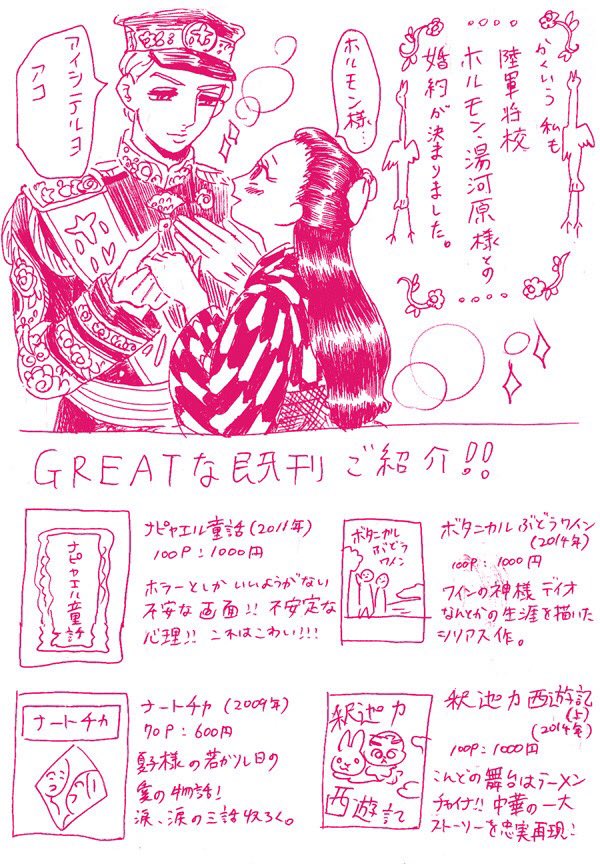 かくいう私も
陸軍将校
ホルモン・湯河原様との
婚約が決まりました。
ホルモン様…
アイシテルヨ
アコ
GREATな既刊ご紹介!!
ナピャエル童話
ナピャエル童話(2011年)
100P:1000円
ホラーとしかいいようがない
不安な画面!! 不安定な
心理!! これはこわい!!!
ボタニカル
ぶどう
ワイン
ボタニカルぶどうワイン
(2014年)
100P:1000円
ワインの神様デイオ
なんとかの生涯を描いた
シリアス作。
ナートチカ
ナートチカ (2009年)
70P:600円
夏子様の若かりし日の
愛の物語!
涙、涙の三話収ろく。
釈迦力
西遊記
釈迦力 西遊記
(上)
(2014年)
100P:1000円
こんどの舞台はラーメン
チャイナ!! 中華の一大
ストーリーを忠実再現!